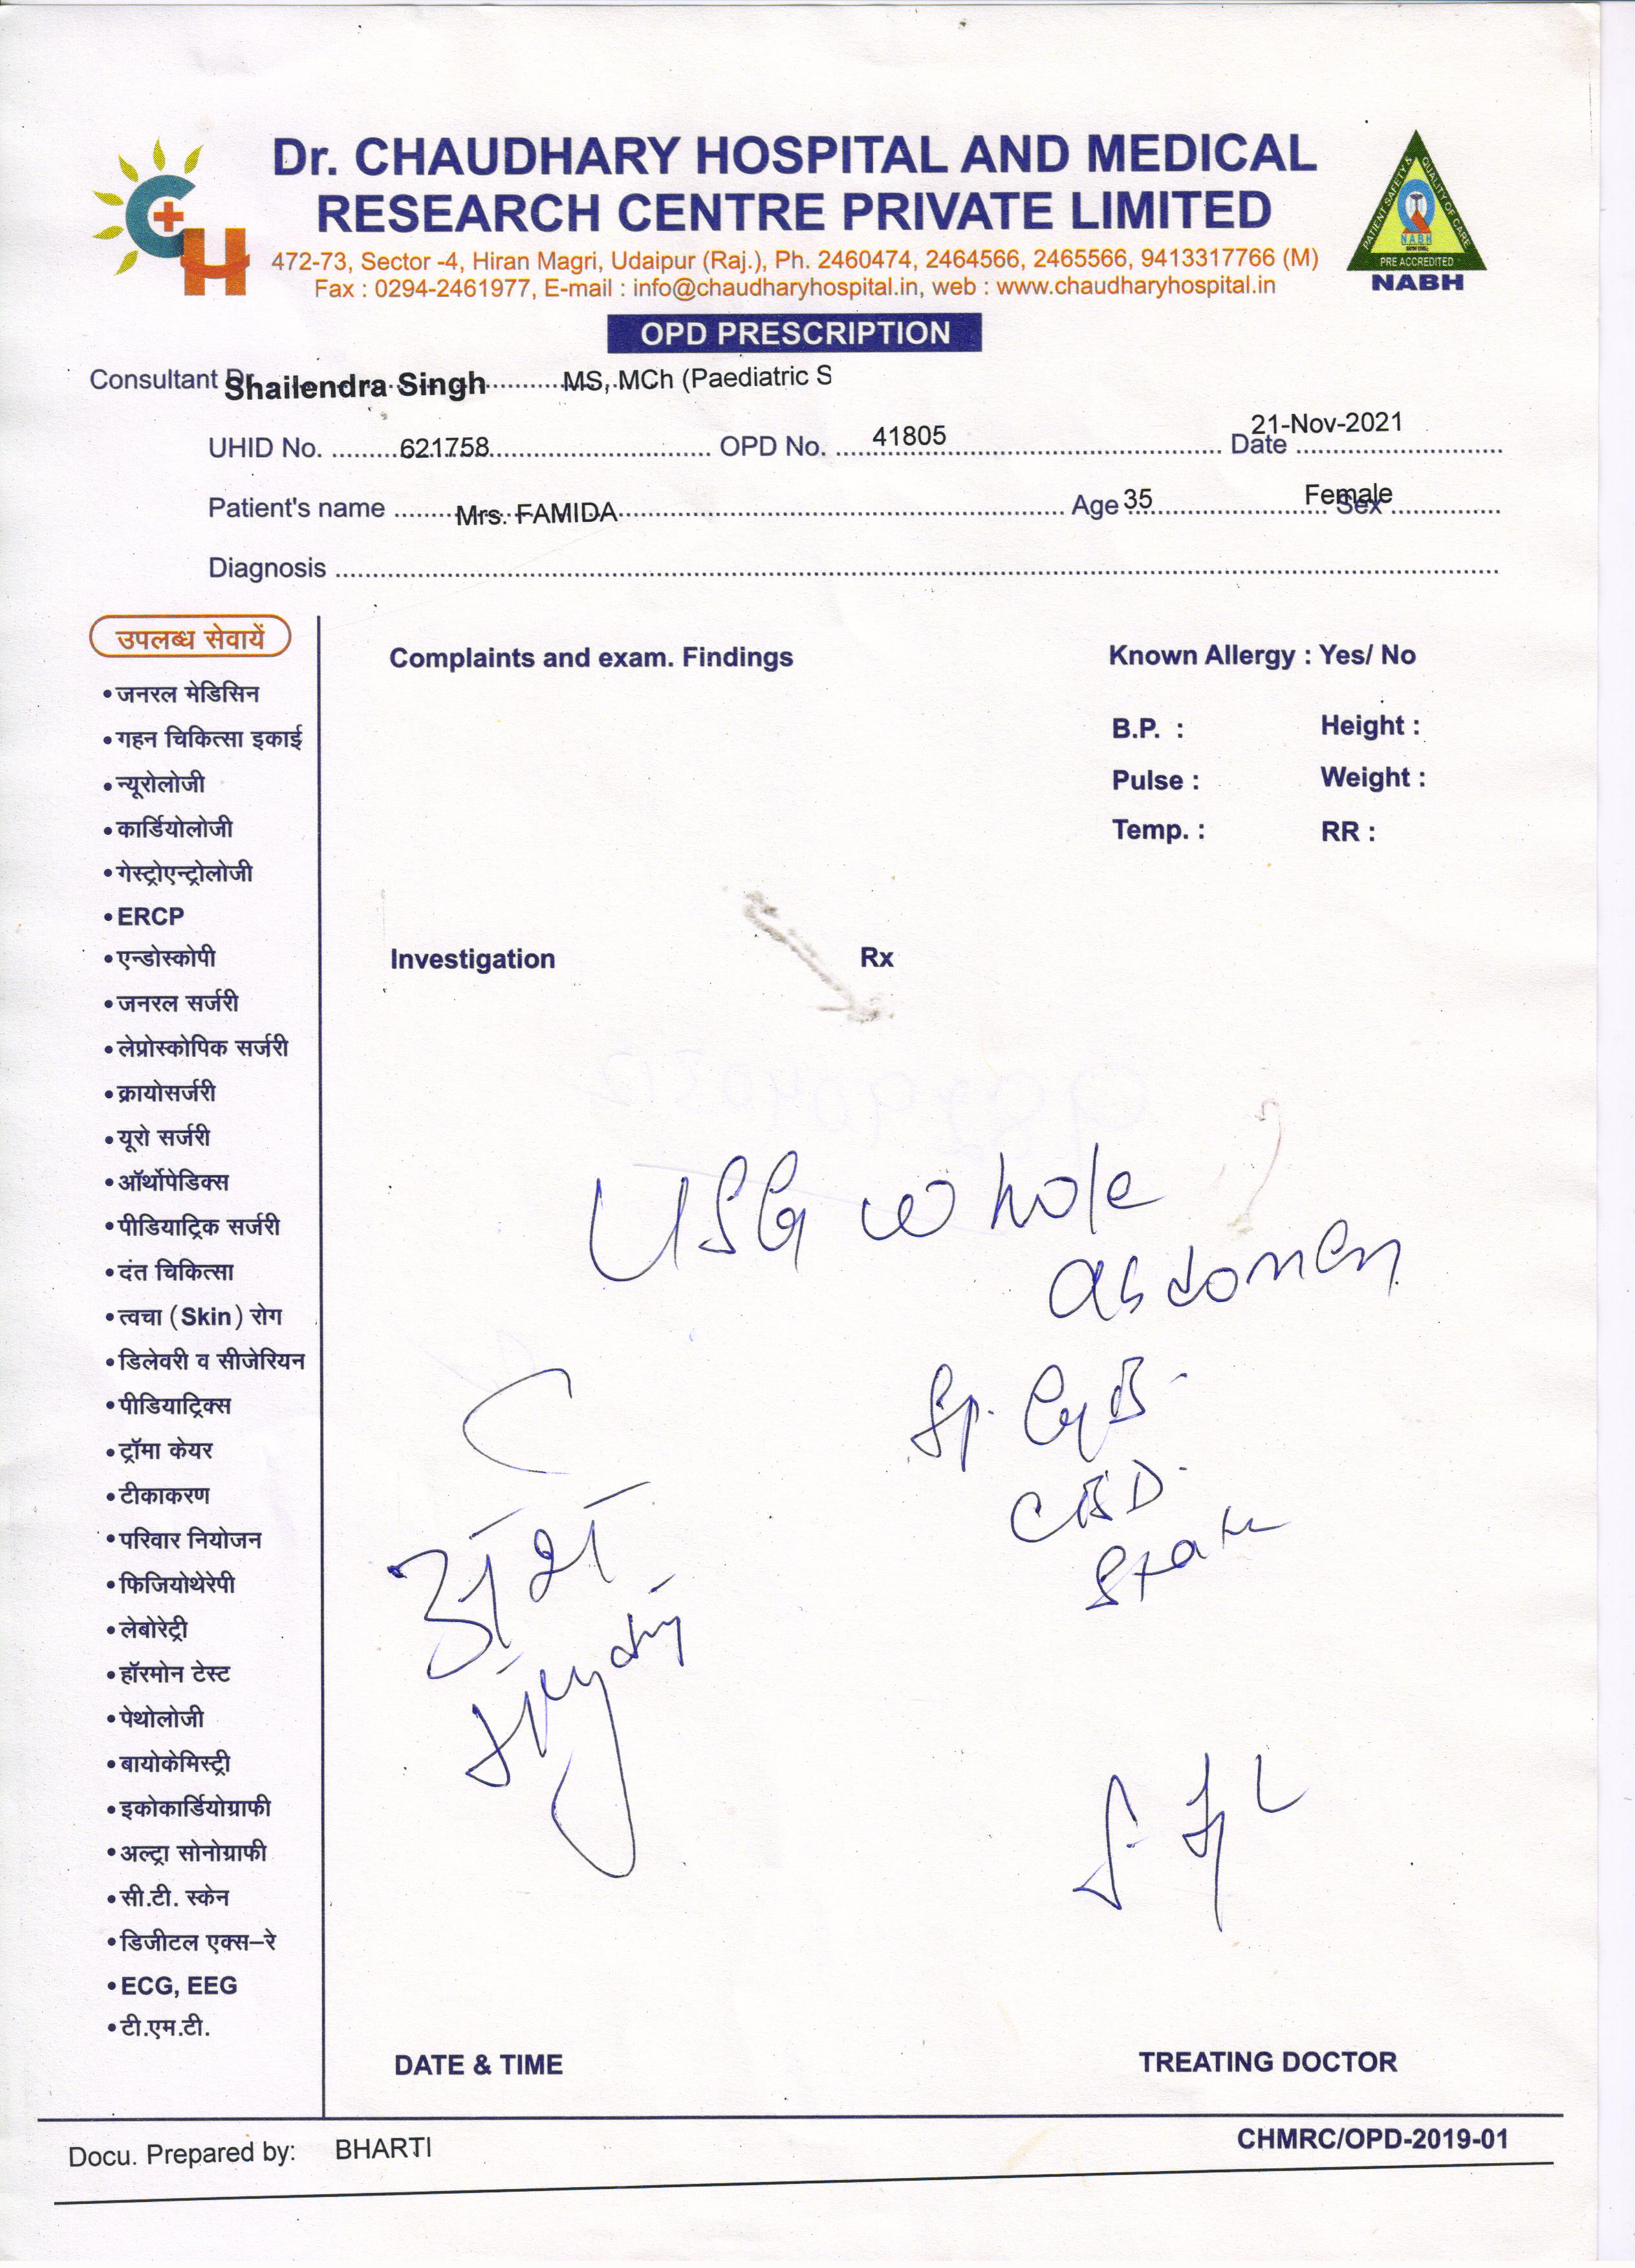 Dr. CHAUDHARY HOSPITAL AND MEDICAL
RESEARCH CENTRE PRIVATE LIMITED
472-73, Sector -4, Hiran Magri, Udaipur (Raj.), Ph. 2460474, 2464566, 2465566, 9413317766 (M)
Fax : 0294-2461977, E-mail : info@chaudharyhospital.in, web : www.chaudharyhospital.in
PATIENT SAFETY & QUALITY OF CARE
NABH
PRE ACCREDITED
NABH
OPD PRESCRIPTION
Consultant Dr. Shailendra Singh MS, MCh (Paediatric S
UHID No. 621758 OPD No. 41805 Date 21-Nov-2021
Patient's name Mrs. FAMIDA Age 35 Sex Female
Diagnosis
उपलब्ध सेवायें
• जनरल मेडिसिन
• गहन चिकित्सा इकाई
• न्यूरोलोजी
• कार्डियोलोजी
• गेस्ट्रोएन्ट्रोलोजी
• ERCP
• एन्डोस्कोपी
• जनरल सर्जरी
• लेप्रोस्कोपिक सर्जरी
• क्रायोसर्जरी
• यूरो सर्जरी
• ऑर्थोपेडिक्स
• पीडियाट्रिक सर्जरी
• दंत चिकित्सा
• त्वचा (Skin) रोग
• डिलेवरी व सीजेरियन
• पीडियाट्रिक्स
• ट्रॉमा केयर
• टीकाकरण
• परिवार नियोजन
• फिजियोथेरेपी
• लेबोरेट्री
• हॉरमोन टेस्ट
• पेथोलोजी
• बायोकेमिस्ट्री
• इकोकार्डियोग्राफी
• अल्ट्रा सोनोग्राफी
• सी.टी. स्केन
• डिजीटल एक्स–रे
• ECG, EEG
• टी.एम.टी.
Complaints and exam. Findings
Known Allergy : Yes/ No
B.P. : Height :
Pulse : Weight :
Temp. : RR :
Investigation Rx
USG whole
abdomen
CBD
DATE & TIME TREATING DOCTOR
CHMRC/OPD-2019-01
Docu. Prepared by: BHARTI